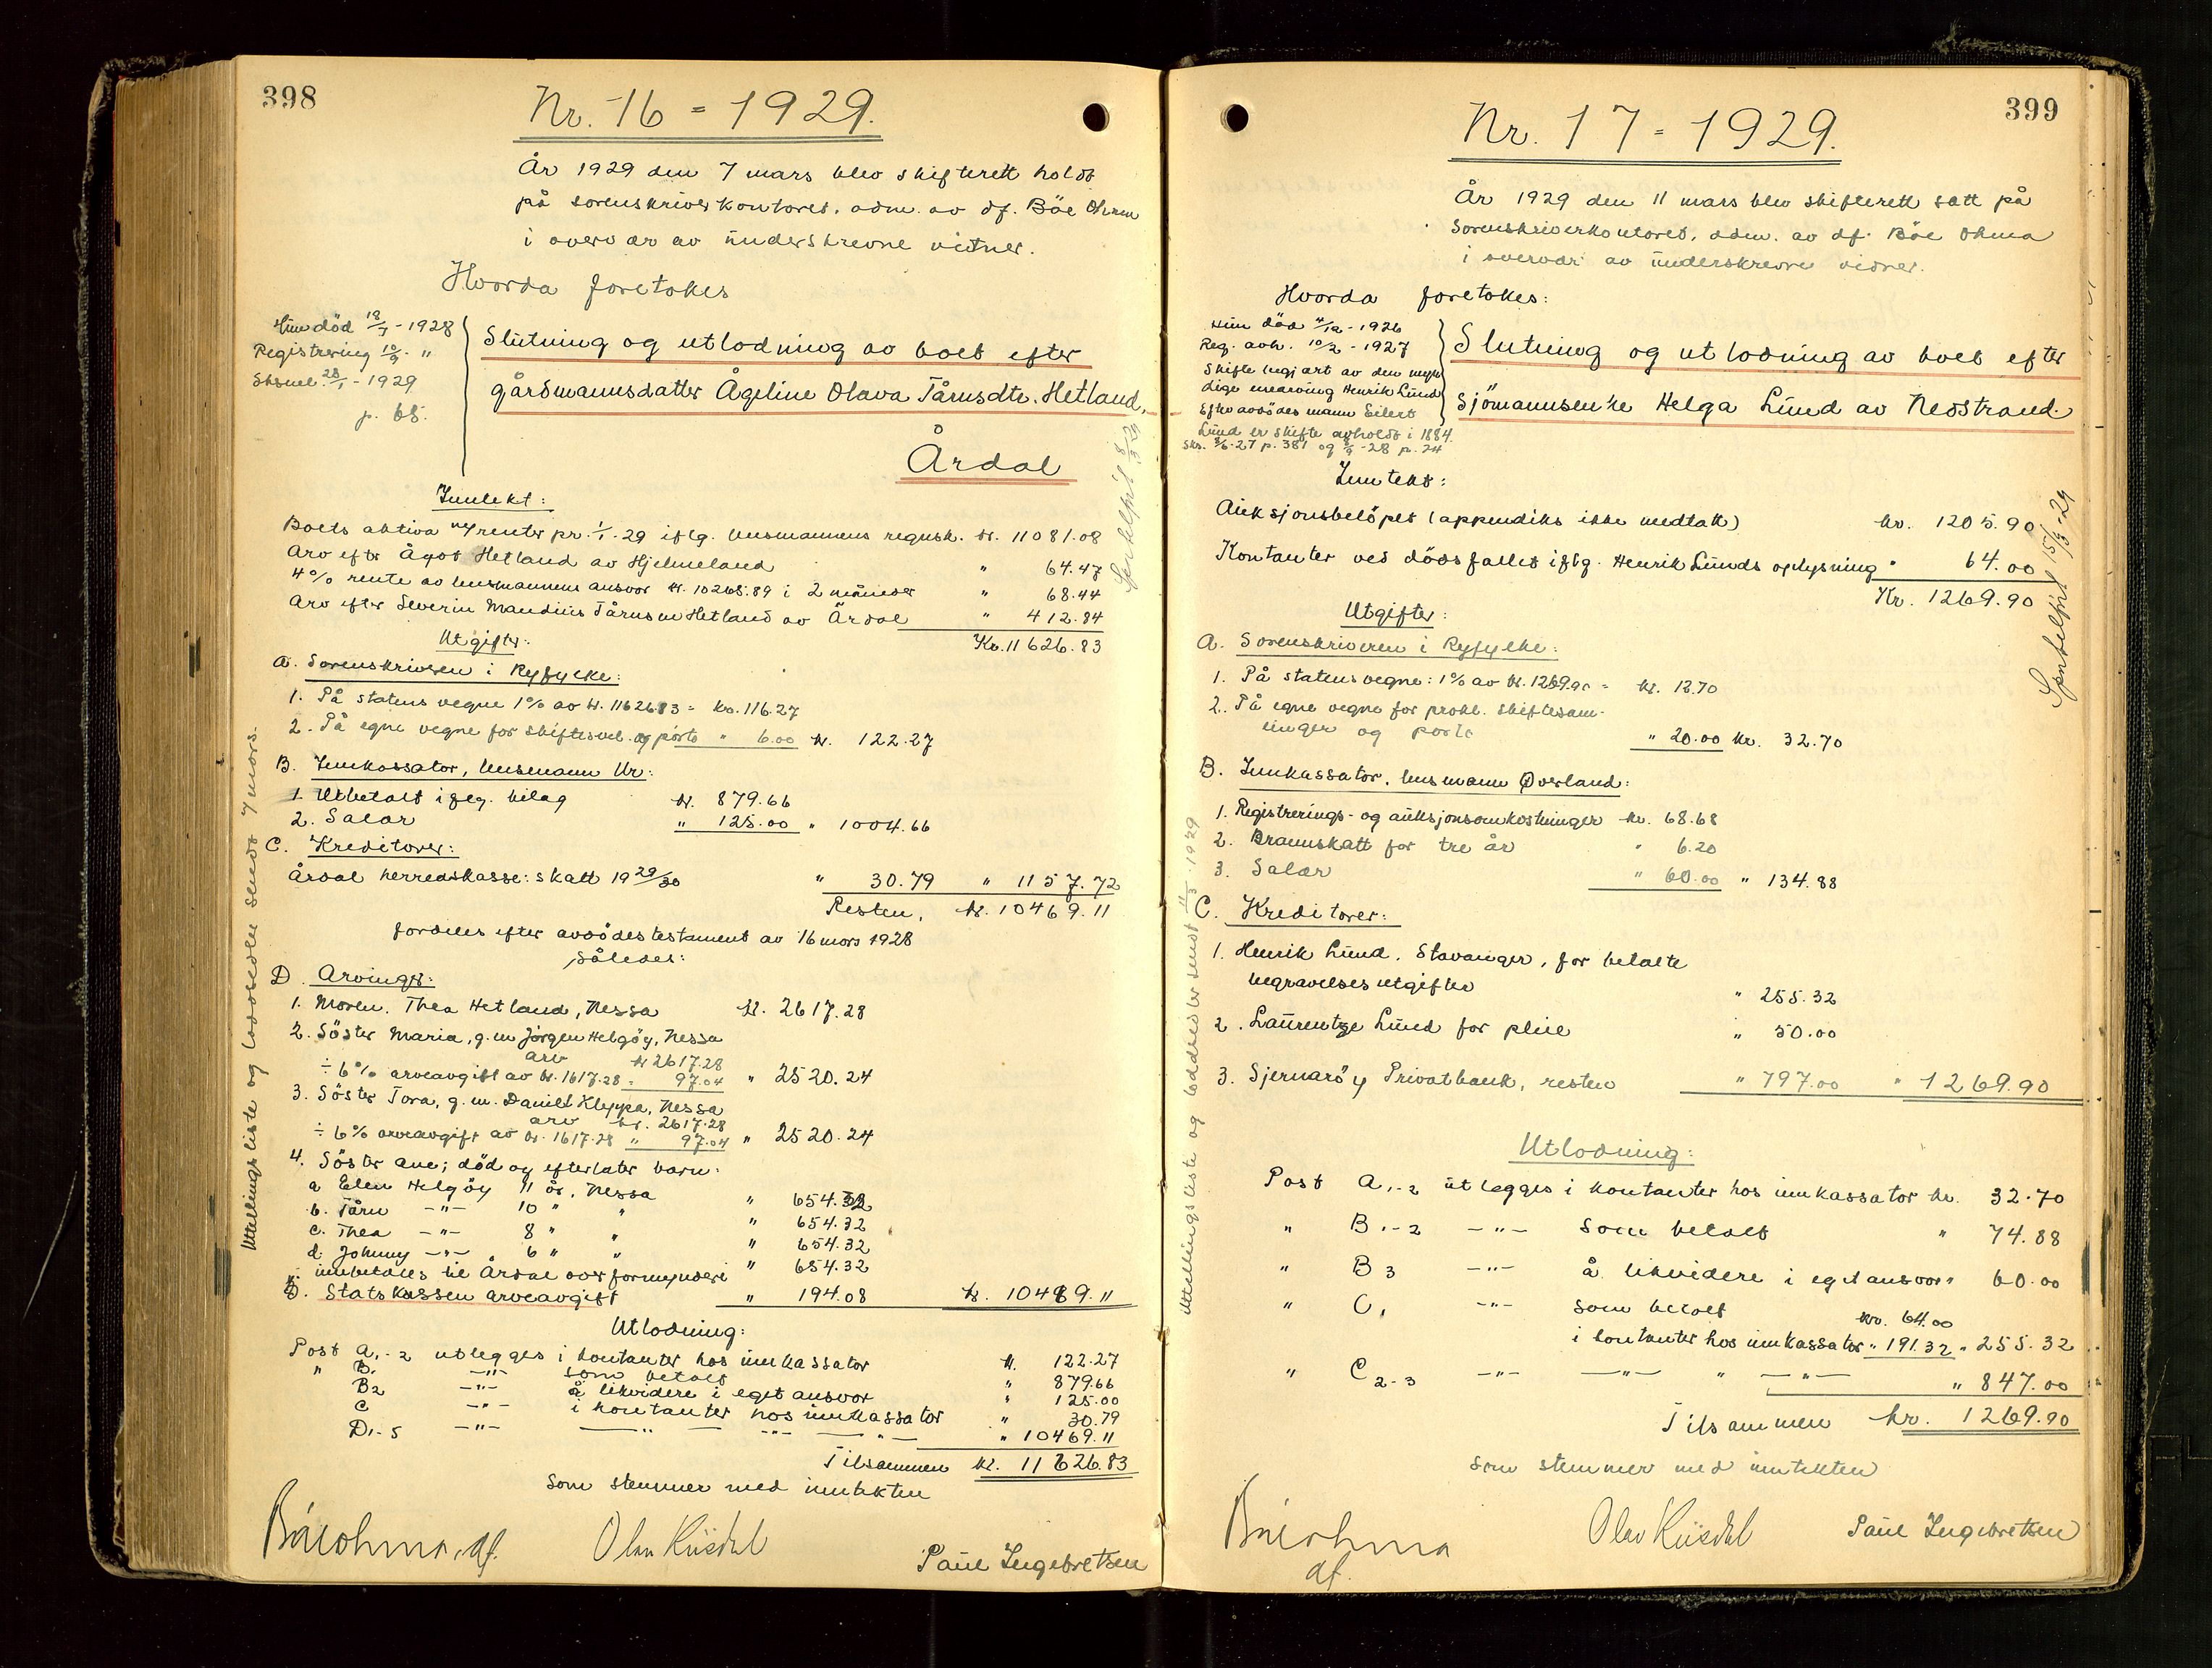 398
Nr. 16 = 1929.
År 1929 den 7 mars blev skifterett holdt
på sorenskriverkontoret, adm. av df. Böe Ohma
i overvær av underskrevne vidner.
Hvorda foretokes
Hun död 18/7 - 1928
Registrering 10/9 - "
Sksml. 28/1 - 1929
p. 65.
Slutning og utlodning av boet efter
gårdmannsdatter Ågeline Olava Tårnsdtr. Hetland,
Årdal
Inntekt:
Boets aktiva m/renter pr. 1/1-29 iflg. lensmannens regnsk. kr. 11081.08
Arv efter Ågot Hetland av Hjelmeland " 64.47
4% rente av lensmannens ansvar kr. 10265.89 i 2 måneder " 68.44
Arv efter Severin Mandius Tårnsen Hetland av Årdal " 412.84
Kr. 11626.83
Utgifter:
A. Sorenskriveren i Ryfylke:
1. På statens vegne 1% av kr. 11626.83 = kr. 116.27
2. På egne vegne for skiftesvel. og porto " 6.00 kr. 122.27
B. Innkassator, lensmann Ur:
1. Utbetalt iflg. bilag kr. 879.66
2. Salær " 125.00 " 1004.66
C. Kreditorer:
Årdal herredskasse: skatt 1929/30 " 30.79 " 1157.72
Resten, kr. 10469.11
fordeles efter avdödes testament av 16 mars 1928
således:
D. Arvinger:
1. Moren, Thea Hetland, Nessa kr. 2617.28
2. Söster Maria, g.m. Jörgen Helgöy, Nessa
arv kr. 2617.28
÷ 6% arveavgift av kr. 1617.28 = 97.04 " 2520.24
3. Söster Tora, g.m. Daniel Kleppa, Nessa
arv kr. 2617.28
÷ 6% arveavgift av kr. 1617.28 " 97.04 " 2520.24
4. Söster Ane; död og efterlater barn:
a Elen Helgöy 11 år, Nessa " 654.32
b. Tårn -"- 10 " " " 654.32
c. Thea -"- 8 " " " 654.32
d. Johnny -"- 6 " " " 654.32
innbetales til Årdal overformynderi
D. Statskassen arveavgift " 194.08 kr. 10469.11
Utlodning:
Post A1-2 utlegges i kontanter hos innkassator kr. 122.27
" B1 -"- som betalt " 879.66
B2 -"- å likvidere i eget ansvar " 125.00
C -"- i kontanter hos innkassator " 30.79
D1-5 -"- -"- -"- -"- " 10469.11
Tilsammen kr. 11626.83
som stemmer med inntekten
Böe Ohma, df. Olav Risdal Paul Ingebretsen
Utlellingsliste og loddsedler sendt 7 mars.
399
Nr. 17 = 1929.
År 1929 den 11 mars blev skifterett satt på
Sorenskriverkontoret, adm. av df. Böe Ohma
i overvær av underskrevne vidner.
Hvorda foretokes:
Hun död 4/12 - 1926
Reg. avh. 10/2 - 1927
Skifte begjært av den myn
dige enearving Henrik Lund
Efter avdödes mann Eilert
Lund er skifte avholdt i 1884.
Sks. 8/6-27 p. 381 og 8/9-28 p. 24
Slutning og utlodning av boet efter
Sjömannsenke Helga Lund av Nedstrand.
Inntekt:
Auksjonsbelöpet (appendiks ikke medtatt) kr. 1205.90
Kontanter ved dödsfallet iflg. Henrik Lunds oplysning " 64.00
Kr. 1269.90
Utgifter:
A. Sorenskriveren i Ryfylke:
1. På statens vegne: 1% av kr. 1269.90 = kr. 12.70
2. På egne vegne for prokl. skiftesam-
linger og porto " 20.00 kr. 32.70
B. Innkassator, lensmann Øverland:
1. Registrerings- og auksjonsomkostninger kr. 68.68
2. Brannskatt for tre år " 6.20
3. Salær " 60.00 " 134.88
C. Kreditorer:
1. Henrik Lund, Stavanger, for betalte
begravelsesutgifter " 255.32
2. Laurentze Lund for pleie " 50.00
3. Sjernaröy Privatbank, resten " 797.00 " 1269.90
Utlodning:
Post A1-2 utlegges i kontanter hos innkassator kr. 32.70
" B1-2 -"- som betalt " 74.88
" B3 -"- å likvidere i eget ansvar " 60.00
" C1 -"- som betalt kr. 64.00
i kontanter hos innkassator " 191.32 " 255.32
" C2-3 -"- -"- " -"- " 847.00
Tilsammen kr. 1269.90
som stemmer med inntekten
Böe Ohma Olav Risdal Paul Ingebretsen
df.
Utlellingsliste og loddsedler sendt 11/3-1929